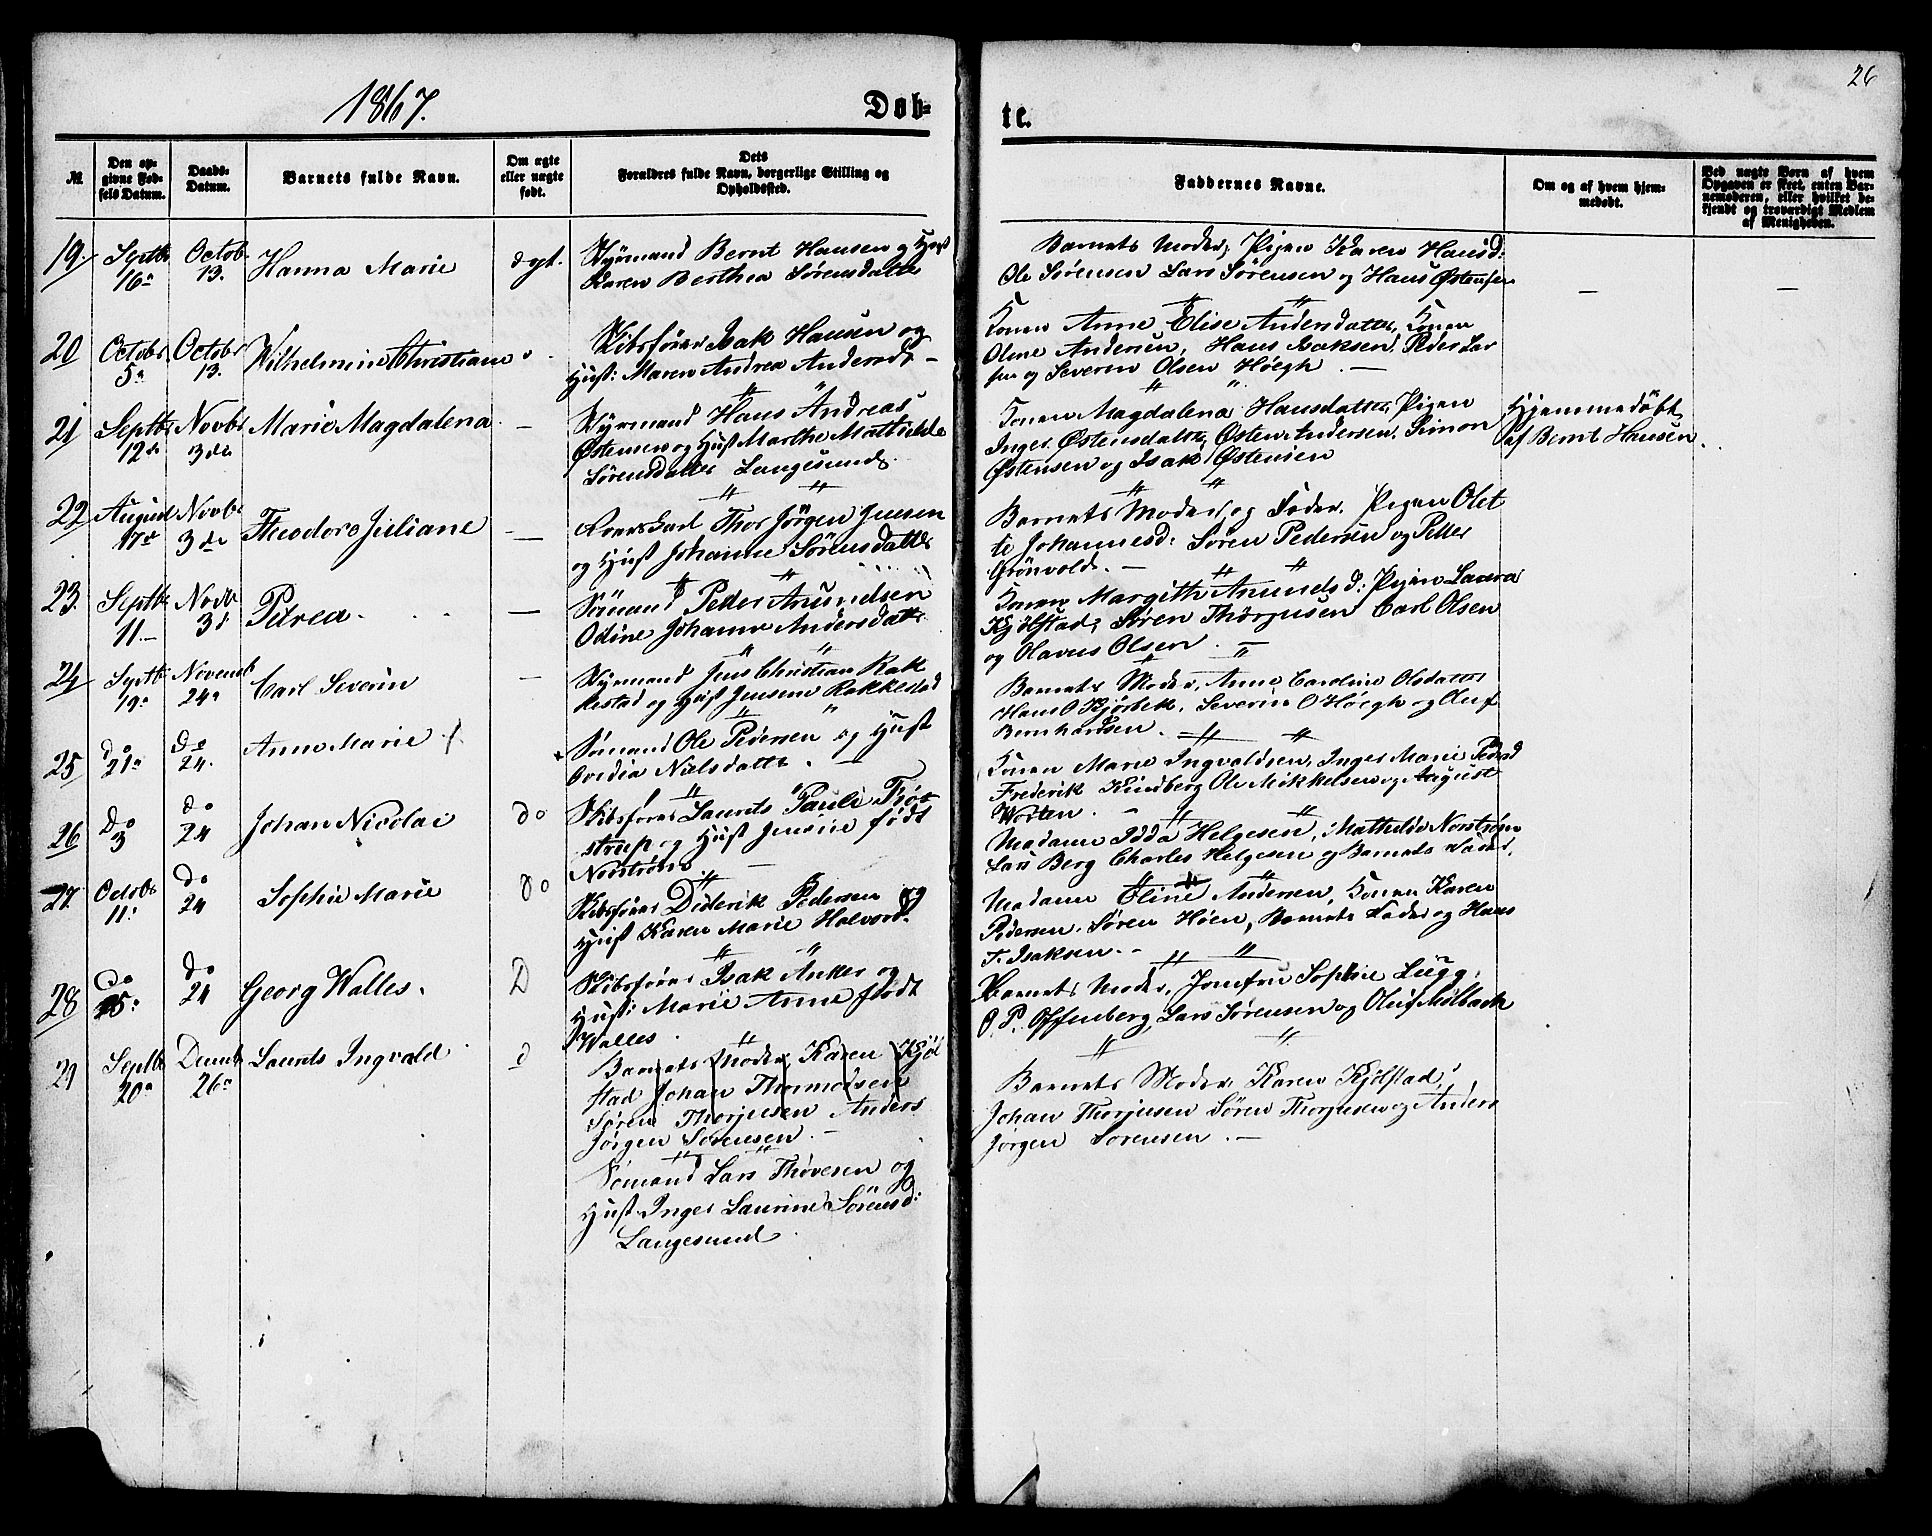 1867.
Døb-
te.
26
№
Den op-
givne Fød-
sels Datum.
Daabs-
Datum.
Barnets fulde Navn.
Om ægte
eller uægte
født.
Dets
Forældres fulde Navn, borgerlige Stilling og
Opholdssted.
Faddernes Navne.
Om og af hvem hjem-
medøbt.
Ved uægte Børn af hvem
Opgaven er skeet, enten Bar-
nemoderen, eller hvilket be-
kjendt og troværdigt Medlem
af Menigheden.
19.
Septbr
16de
Octob.
13.
Hanna Marie
Styrmand Bernt Hansen og Hust
Karen Berthea Sørensdatter
Barnets Moder, Pigen Karen Hansd:
Ole Sørensen Lars Sørensen og Hans Østensen
—
—
20
Octobr
5
Octobr
13.
Wilhelmine Christiane
Skibsfører Isak Hansen og
Hust: Maren Andrea Andersdr —
Konen Anne Elise Andersdatter, Konen
Oline Andersen, Hans Isaksen, Peder Lar
sen og Severin Olsen Høegh. —
21
Septbr
12te
Novbr
3die
Marie Magdalena
—
Styrmand Hans Andreas
Østensen og Hust Marthe Mathilde
Sørensdatter Langesund
Konen Magdalena Hansdatter, Pigen
Inger Østensdatter, Østen Andersen, Simon
Østensen og Isak Østensen
Hjemmedøbt
af Bernt Hansen.
22
August
17de
Novbr
3die
Theodore Juliane
—
Thor Jørgen Jensen
og Hust Johanne Sørensdatter
Barnets Moder og Fader, Pigen Olet
te Johannesd: Søren Pedersen og Petter
Grönvold. —
23.
Septbr
11. —
Novbr
3d
Petrea.
—
Sömand Peder Amundsen
Odine Johanne Andersdatter
Konen Margith Amundsd: Pigen Laura
Kjölstad, Søren Thorjusen Carl Olsen
og Olavus Olsen. —
24
Septbr
19.
Novemb
24de
Carl Severin
—
Styrmand Jens Christian Rak
kestad og Hust Jensine Rakkestad
Barnets Moder, Anne Caroline Olsdatter
Hans O Kjörbek, Severin O Höegh og Oluf
Bernhardsen.
25
do
21de
do
24.
Anne Marie
Sömand Ole Pedersen og Hust
Ovidia Nielsdatter. —
Konen Marie Ingvaldsen, Inger Marie Pedersd
Frederik Lindberg Ole Mikkelsen og August
Worten. —
26
Do
3
do
24
Johan Nicolai
do
Skibsfører Laurits Pauli Trøt
strup og Hust Jensine født
Norström —
Madame Idda Helgesen, Mathilde Norström
Lars Berg Charles Helgesen og Barnets Fader.
27.
Octobr
11
do
24
Sophie Marie
do
Skibsfører Diderik Pedersen og
Hust Karen Marie Halvors.
Madame Eline Andersen, Konen Karen
Pedersen. Søren Höen, Barnets Fader og Hans
F. Isaksen. —
28
Do
15
do
24
Georg Walles.
D
Skibsfører Isak Anker og
Hust: Marie Anne født
Walles.
Barnets Moder, Jomfru Sophie Lugg,
O. P. Offenberg, Lars Sørensen og Oluf Mølbach
29
Septbr
20de
Decemb
26de
Laurits Ingvald
d
Barnets Moder Karen Kjöl
stad Johan Thormodsen
Søren Thorjusen Anders
Jørgen Sörensen. —
Sömand Lars Thovesen og
Hust Inger Laurine Sörensd:
Langesund
Barnets Moder, Karen Kjölstad,
Johan Thorjusen Søren Thorjusen og Anders
Jørgen Sorensen. —